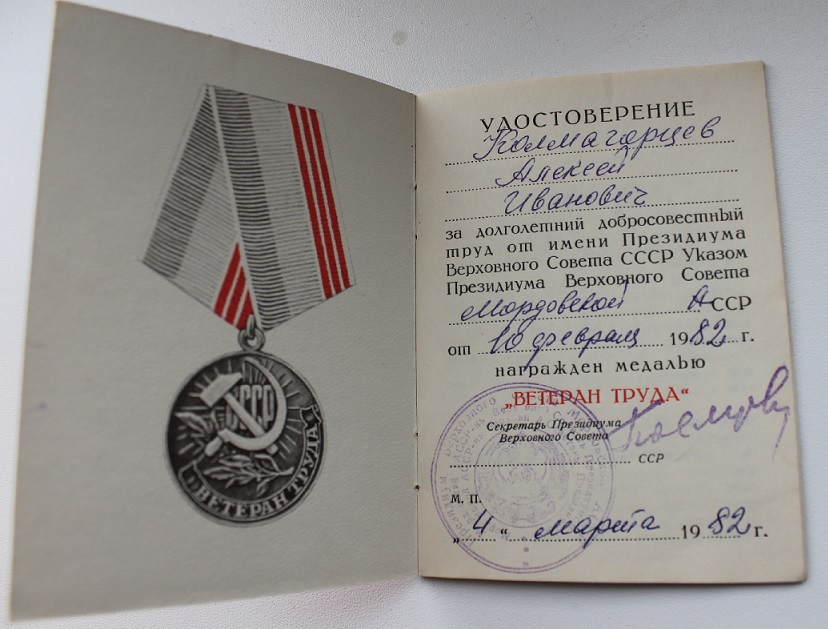 СССР
ВЕТЕРАН ТРУДА
УДОСТОВЕРЕНИЕ
Колмагорцев
Алексей
Иванович
за долголетний добросовестный
труд от имени Президиума
Верховного Совета СССР Указом
Президиума Верховного Совета
Мордовской АССР
от 10 февраля 1982 г.
награжден медалью
„ВЕТЕРАН ТРУДА“
Секретарь Президиума
Верховного Совета
ССР
М. П.
„4“ марта 1982 г.